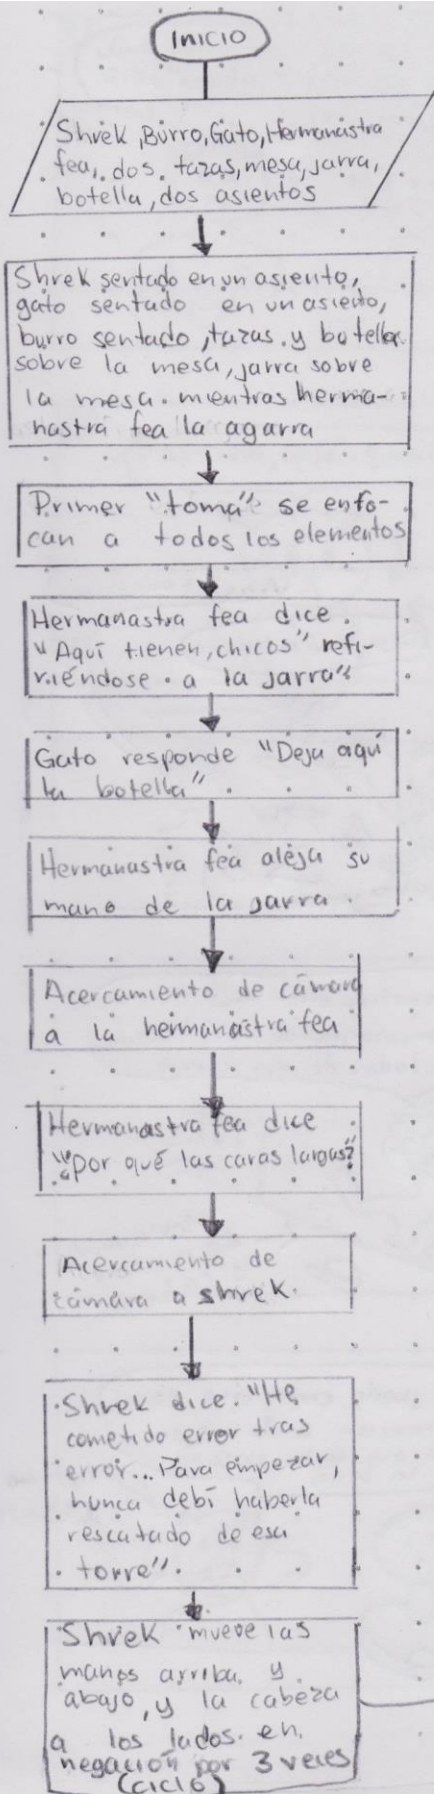 INICIO
Shrek, Burro, Gato, Hermanastra
fea, dos tazas, mesa, jarra,
botella, dos asientos
Shrek sentado en un asiento,
gato sentado en un asiento,
burro sentado, tazas y botella
sobre la mesa, jarra sobre
la mesa. mientras herma-
nastra fea la agarra
Primer "toma" se enfo-
can a todos los elementos
Hermanastra fea dice
"Aquí tienen, chicos" refi-
riéndose a la jarra"
Gato responde "Deja aquí
la botella".
Hermanastra fea aleja su
mano de la jarra.
Acercamiento de cámara
a la hermanastra fea
Hermanastra fea dice
"¿Por qué las caras largas?"
Acercamiento de
cámara a shrek.
Shrek dice. "He
cometido error tras
error... Para empezar,
nunca debí haberla
rescatado de esa
torre".
Shrek mueve las
manos arriba y
abajo, y la cabeza
a los lados en
negación por 3 veces
(ciclo)